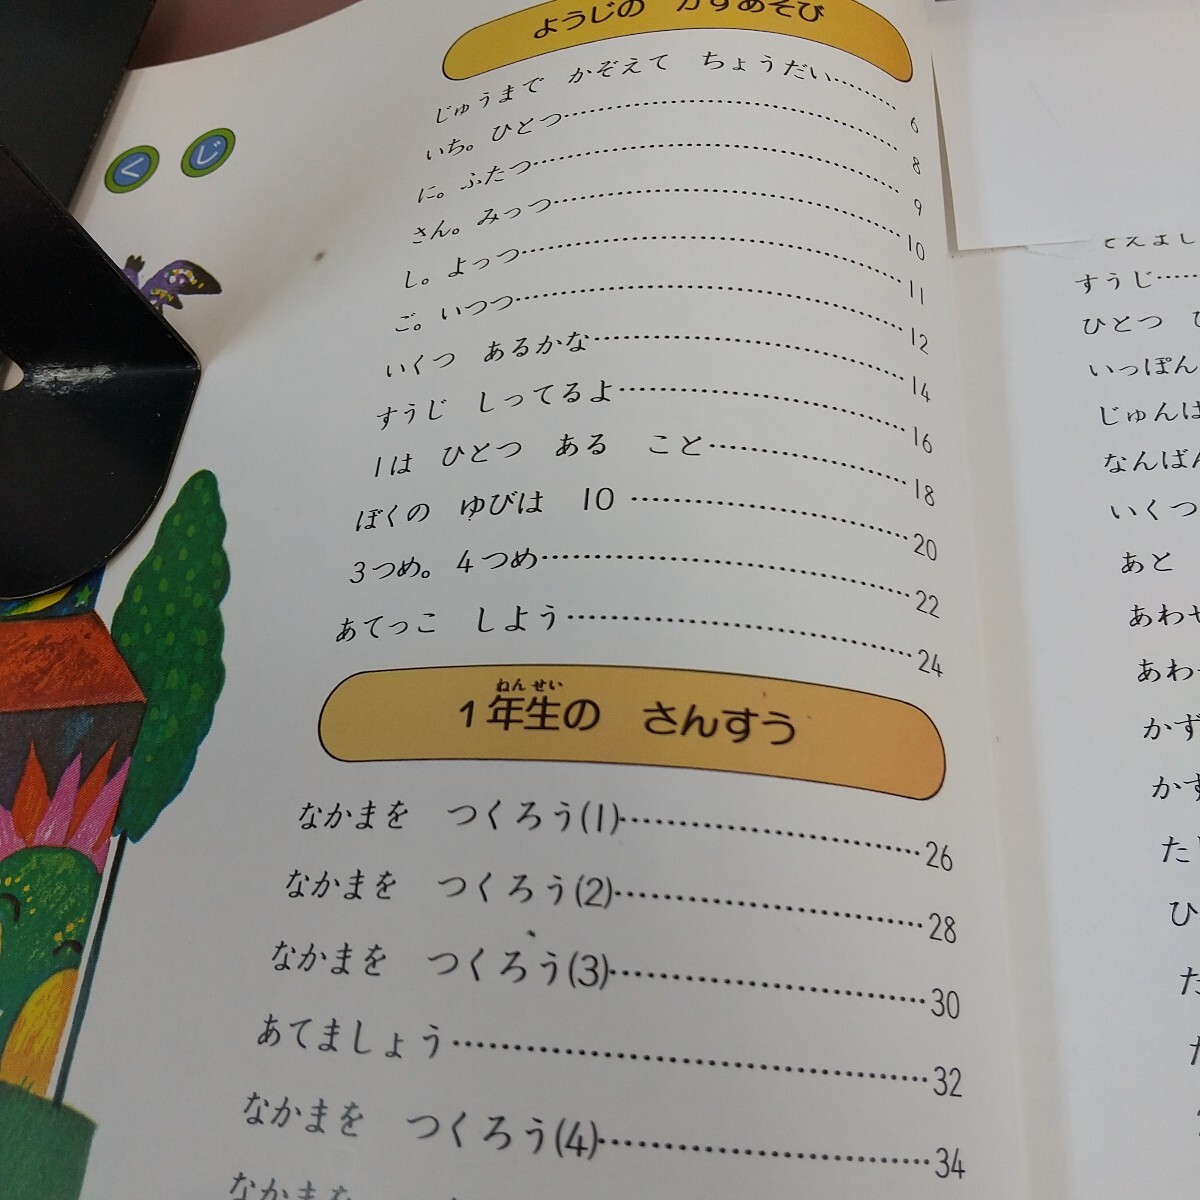 くじ
ようじの かずあそび
じゅうまで かぞえて ちょうだい……… 6
いち。ひとつ……… 8
に。ふたつ……… 9
さん。みっつ……… 10
し。よっつ……… 11
ご。いつつ……… 12
いくつ あるかな……… 14
すうじ しってるよ……… 16
1は ひとつ ある こと……… 18
ぼくの ゆびは 10 ……… 20
3つめ。4つめ……… 22
あてっこ しよう……… 24
ねん せい
1年生の さんすう
なかまを つくろう(1)……… 26
なかまを つくろう(2)……… 28
なかまを つくろう(3)……… 30
あてましょう……… 32
なかまを つくろう(4)……… 34
なかまを
すうじ……
ひとつ
いっぽん
じゅんは
なんばん
いくつ
あと
あわせ
あわ
かず
かず
た
ひ
た